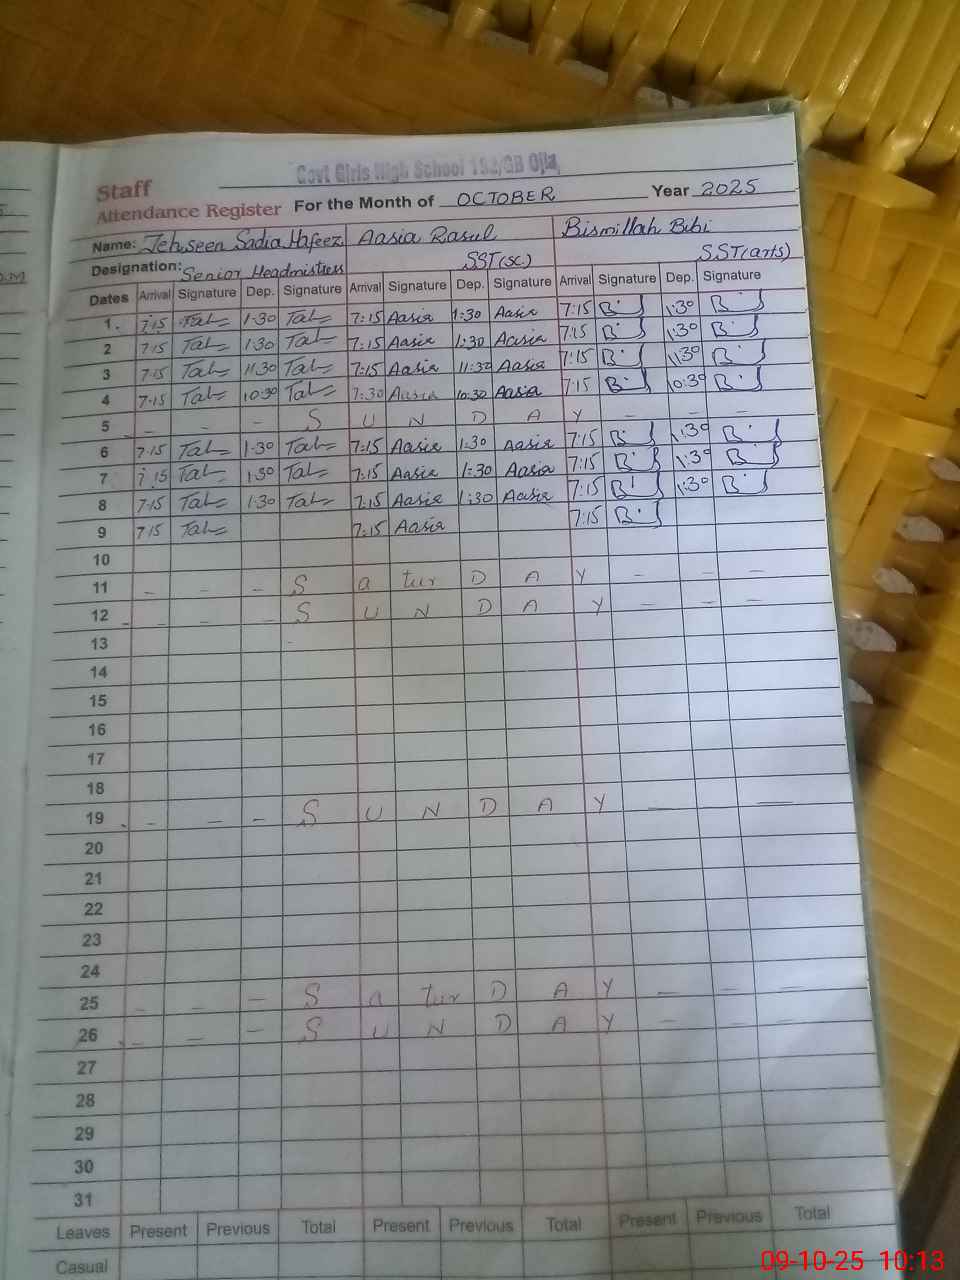 Govt Girls High School 182/GB Ojla,
Staff
Attendance Register For the Month of OCTOBER Year 2025
Name: Tehseen Sadia Hafeez Aasia Rasul Bismillah Bibi
Designation: Senior Headmistress SST(sc.) SST(arts)
Dates Arrival Signature Dep. Signature Arrival Signature Dep. Signature Arrival Signature Dep. Signature
1. 7:15 1:30 7:15 Aasia 1:30 Aasia 7:15 1:30
2 7:15 1:30 7:15 Aasia 1:30 Aasia 7:15 1:30
3 7:15 11:30 7:15 Aasia 11:30 Aasia 7:15 11:30
4 7:15 10:30 7:30 Aasia 10:30 Aasia 7:15 10:30
5 - - - S U N D A Y - - -
6 7:15 1:30 7:15 Aasia 1:30 Aasia 7:15 1:30
7 7:15 1:30 7:15 Aasia 1:30 Aasia 7:15 1:30
8 7:15 1:30 7:15 Aasia 1:30 Aasia 7:15 1:30
9 7:15 7:15 Aasia 7:15
10
11 - - - S a tur D A Y - - -
12 - - - S U N D A Y - - -
13
14
15
16
17
18
19 - - - S U N D A Y - -
20
21
22
23
24
25 - - - S a tur D A Y - - -
26 - - - S U N D A Y - - -
27
28
29
30
31
Leaves Present Previous Total Present Previous Total Present Previous Total
Casual
09-10-25 10:13